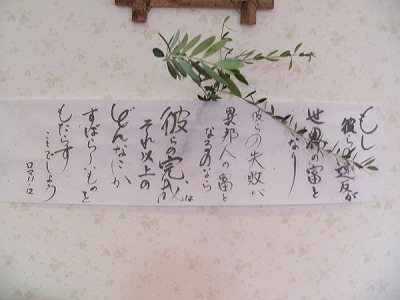 もし
彼らの違反が
世界の富と
なり
彼らの失敗が
異邦人の富と
なるのなら
彼らの完成は
それ以上の
どんなにか
すばらしいものを
もたらす
ことでしょう
ロマ11:12